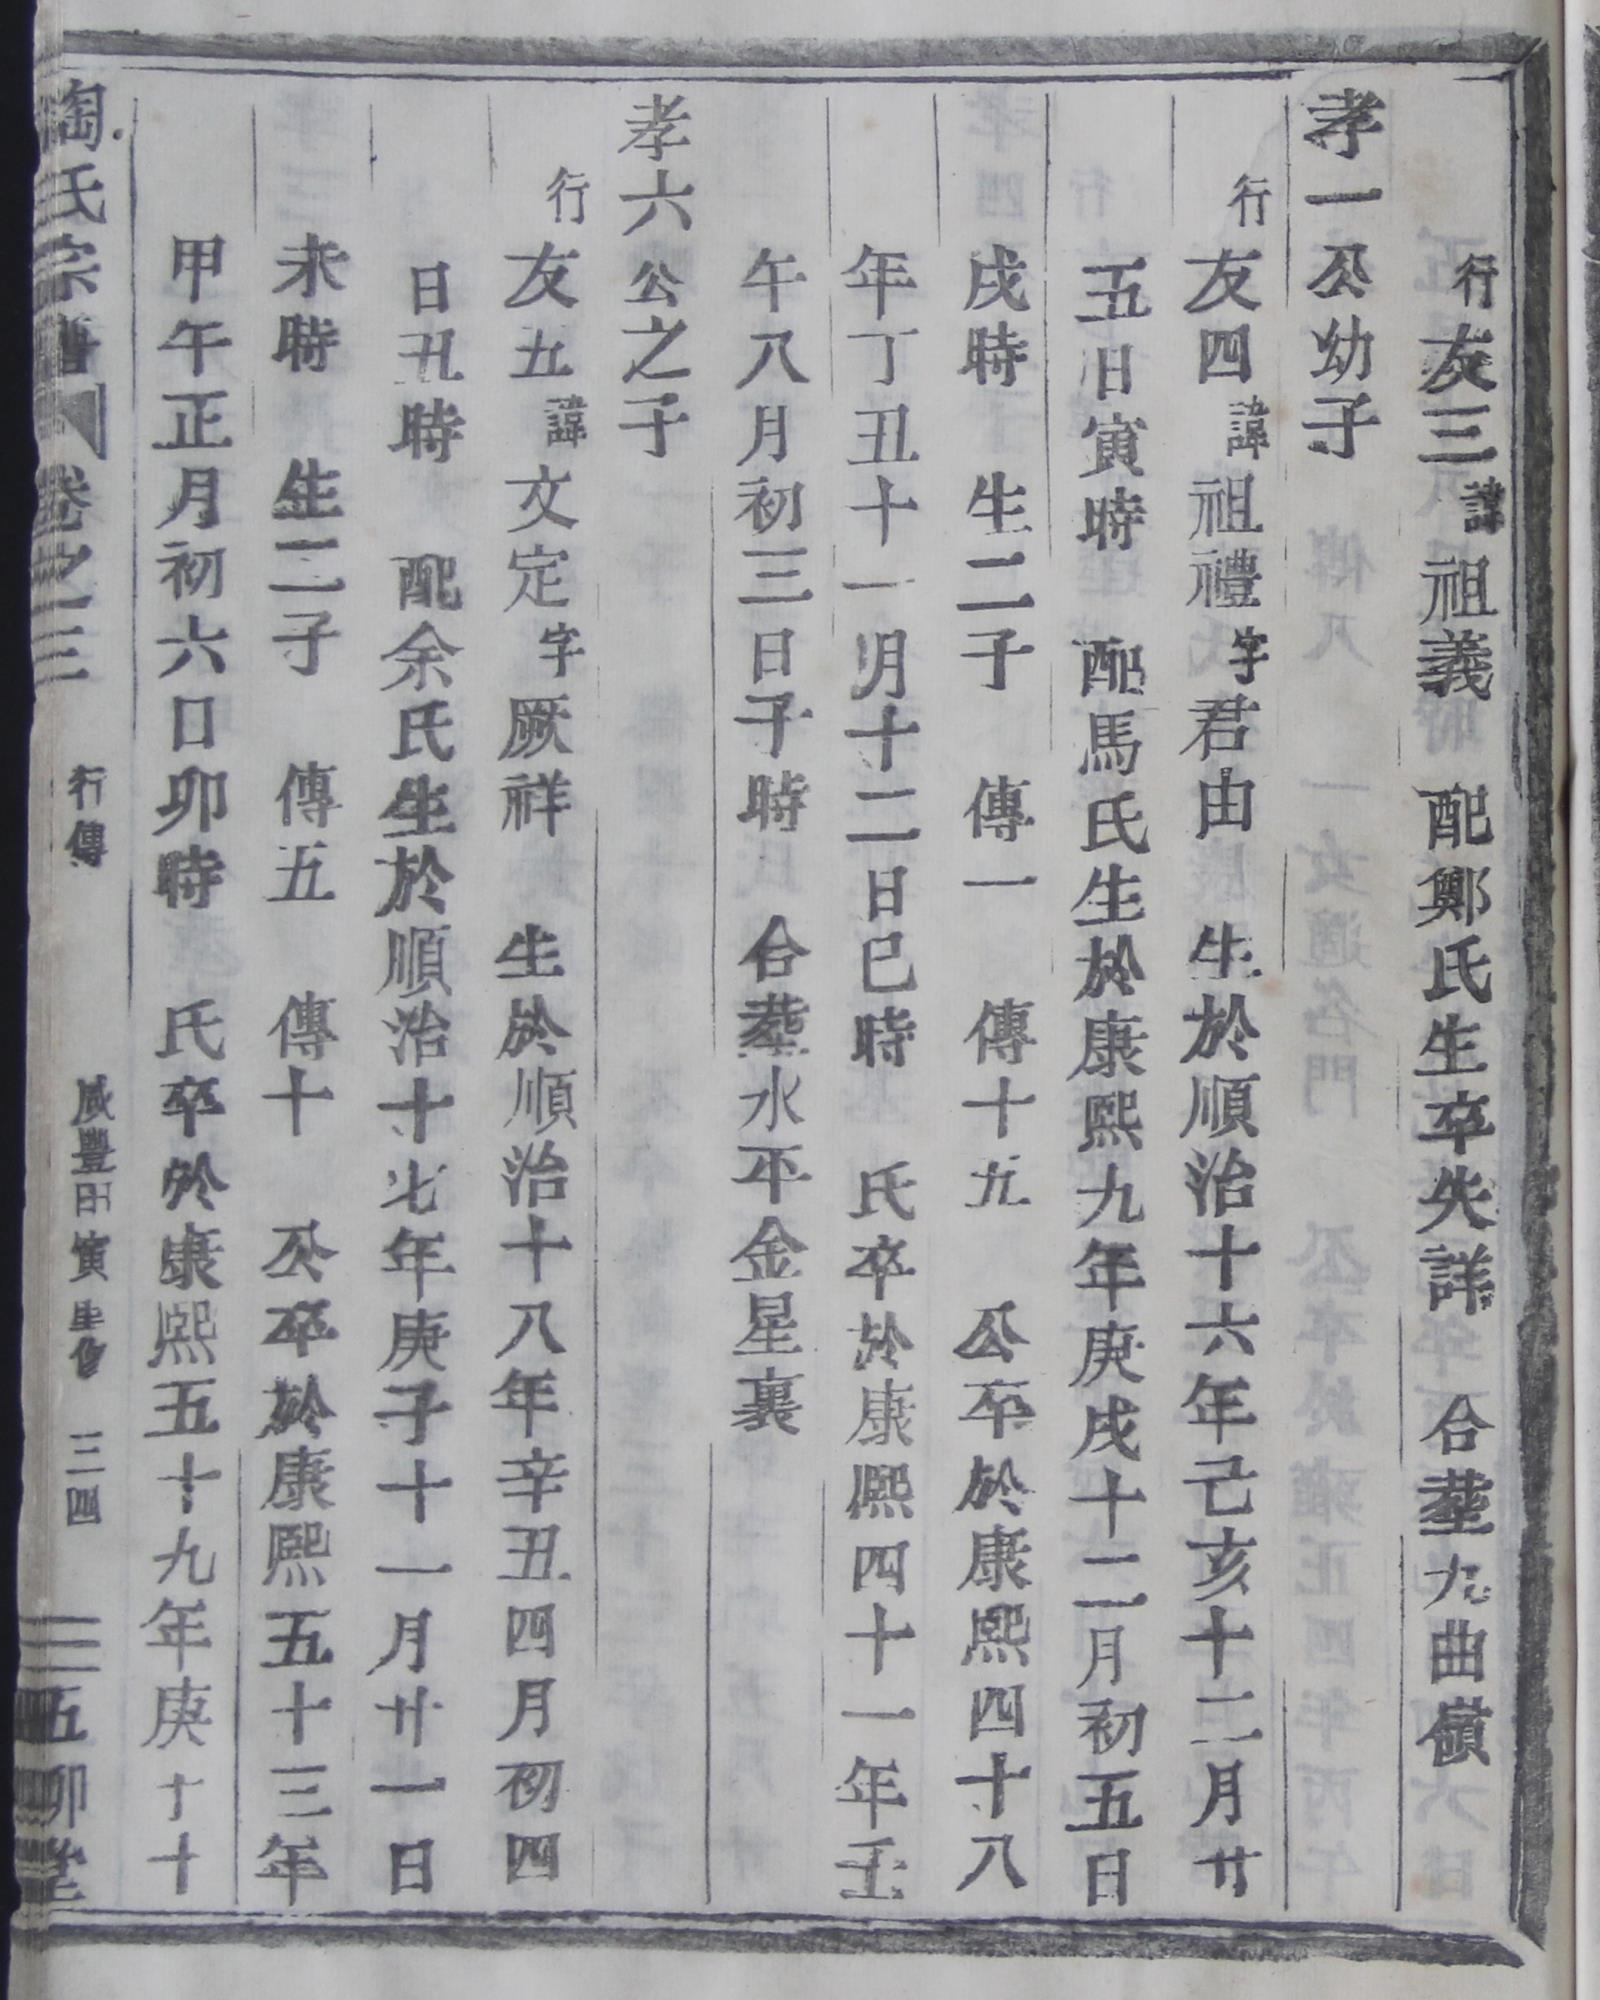 行友三諱祖義 配鄭氏生卒失詳 合塟九曲嶺
孝一公幼子
行友四諱祖禮字君由 生於順治十六年己亥十二月廿
五日寅時 配馬氏生於康熙九年庚戌十二月初五日
戌時 生二子 傳一 傳十九 公卒於康熙四十八
年丁丑十一月十二日巳時 氏卒於康熙四十一年壬
午八月初三日子時 合塟水平金星裏
孝六公之子
行友五諱文定字厥祥 生於順治十八年辛丑四月初四
日丑時 配余氏生於順治十七年庚子十一月廿一日
未時 生二子 傳五 傳十 公卒於康熙五十三年
甲午正月初六日卯時 氏卒於康熙五十九年庚十十
陶氏宗譜 卷之三 行傳 咸豐甲寅重修 三四 五柳堂